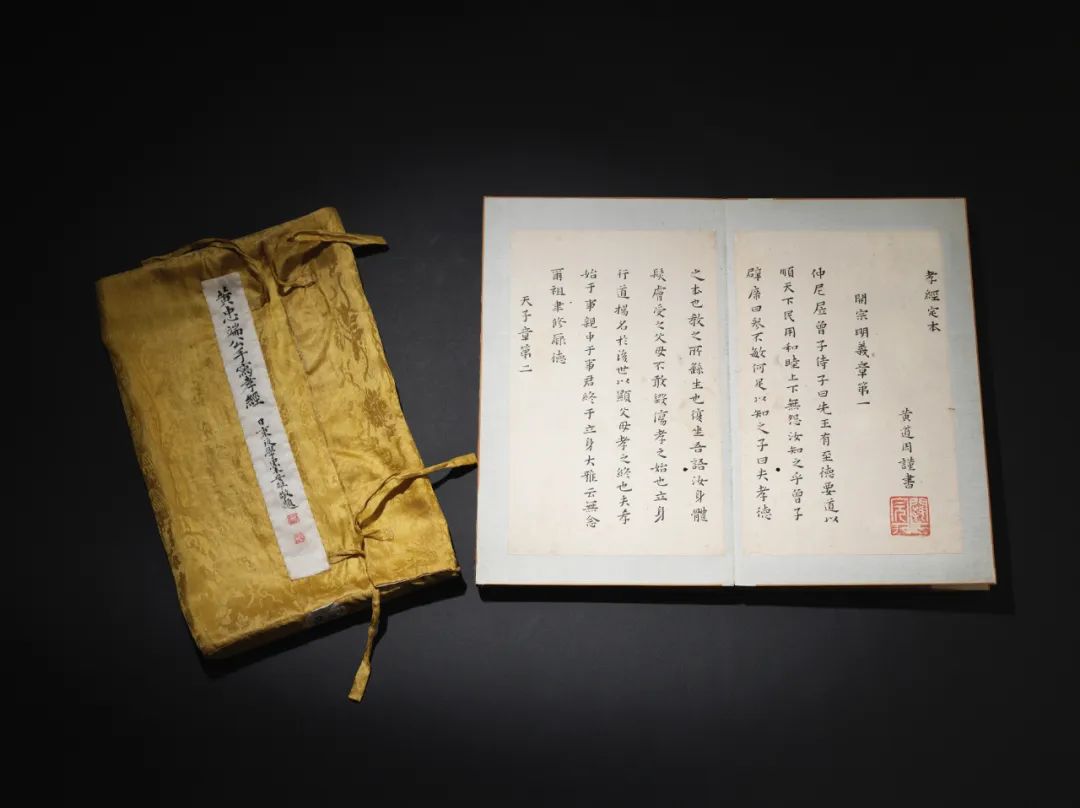 黃忠端公手寫孝經
日本後學
敬題
孝經定本
黃道周謹書
開宗明義章第一
仲尼居曾子侍子曰先王有至德要道以
順天下民用和睦上下無怨汝知之乎曾子
辟席曰參不敏何足以知之子曰夫孝德
之本也教之所繇生也復坐吾語汝身體
髮膚受之父母不敢毀傷孝之始也立身
行道揚名於後世以顯父母孝之終也夫孝
始于事親中于事君終于立身大雅云無念
爾祖聿修厥德
天子章第二